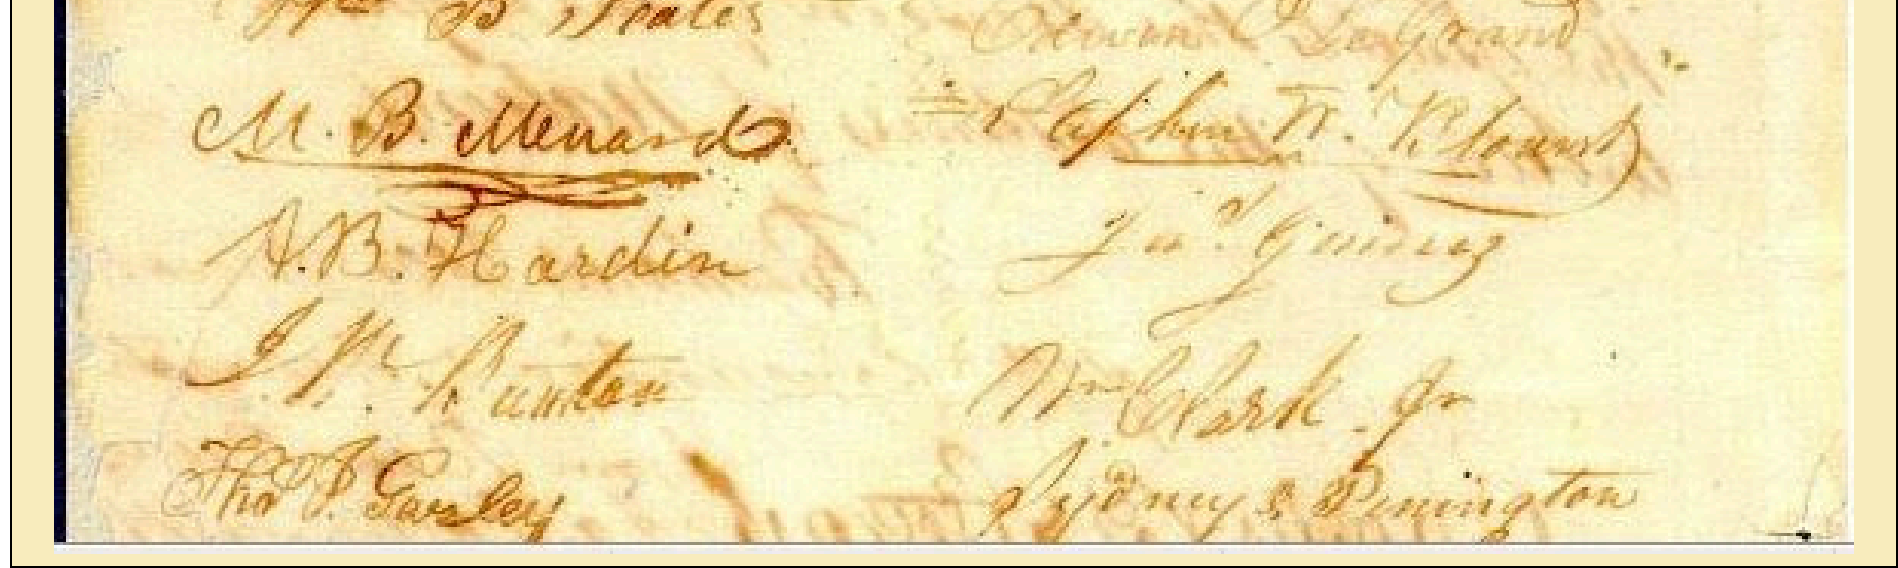 Wm B Scates
M. B. Menard
A. B. Hardin
J. W. Bunton
Thos J. Gazley
Edwin O LeGrand
Stephen W. Blount
Jas Gaines
Wm Clark Jr
Sydney O Penington